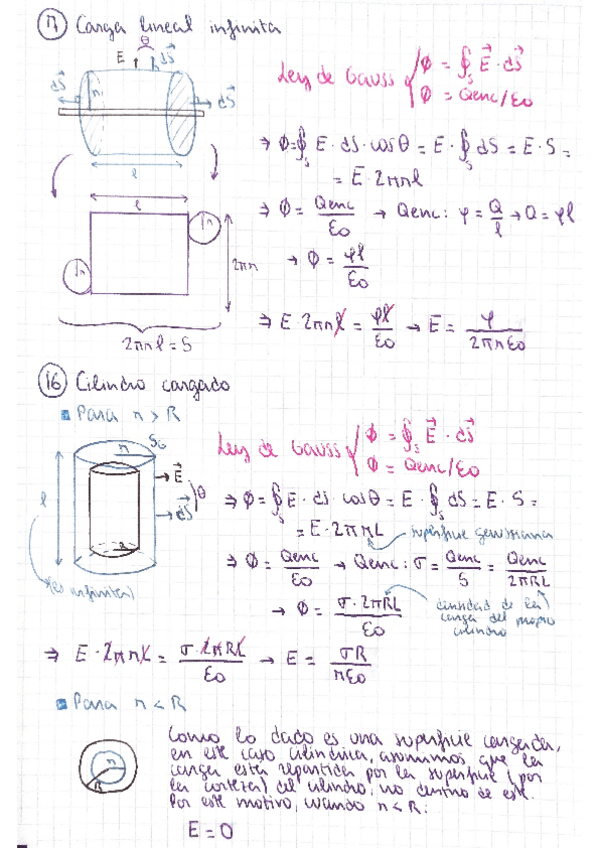 17 Carga lineal infinita
θ
E dS
dS r dS
l
Ley de Gauss { Φ = ∮s E · dS
Φ = Qenc/ε0
⇒ Φ = ∮s E · dS · cosθ = E · ∮s dS = E · S =
= E · 2πrl
l
r
2πr
r
2πrl = S
⇒ Φ = Qenc/ε0 → Qenc: φ = Q/l → Q = φl
→ Φ = φl/ε0
⇒ E 2πrl = φl/ε0 → E = φ/2πrε0
16 Cilindro cargado
Para r > R
r SG
E
θ
dS
l
(es infinita)
Ley de Gauss { Φ = ∮s E · dS
Φ = Qenc/ε0
⇒ Φ = ∮s E · dS · cosθ = E · ∮s dS = E · S =
= E · 2πrL superficie gaussiana
⇒ Φ = Qenc/ε0 → Qenc: σ = Qenc/S = Qenc/2πRL
→ Φ = σ · 2πRL/ε0 densidad de la
carga del propio
cilindro
⇒ E · 2πrL = σ · 2πRL/ε0 → E = σR/rε0
Para r < R
r
R
Como lo dado es una superficie cargada,
en este caso cilíndrica, asumimos, que la
carga está repartida por la superficie (por
la corteza) del cilindro, no dentro de este.
Por este motivo, cuando r < R:
E = 0